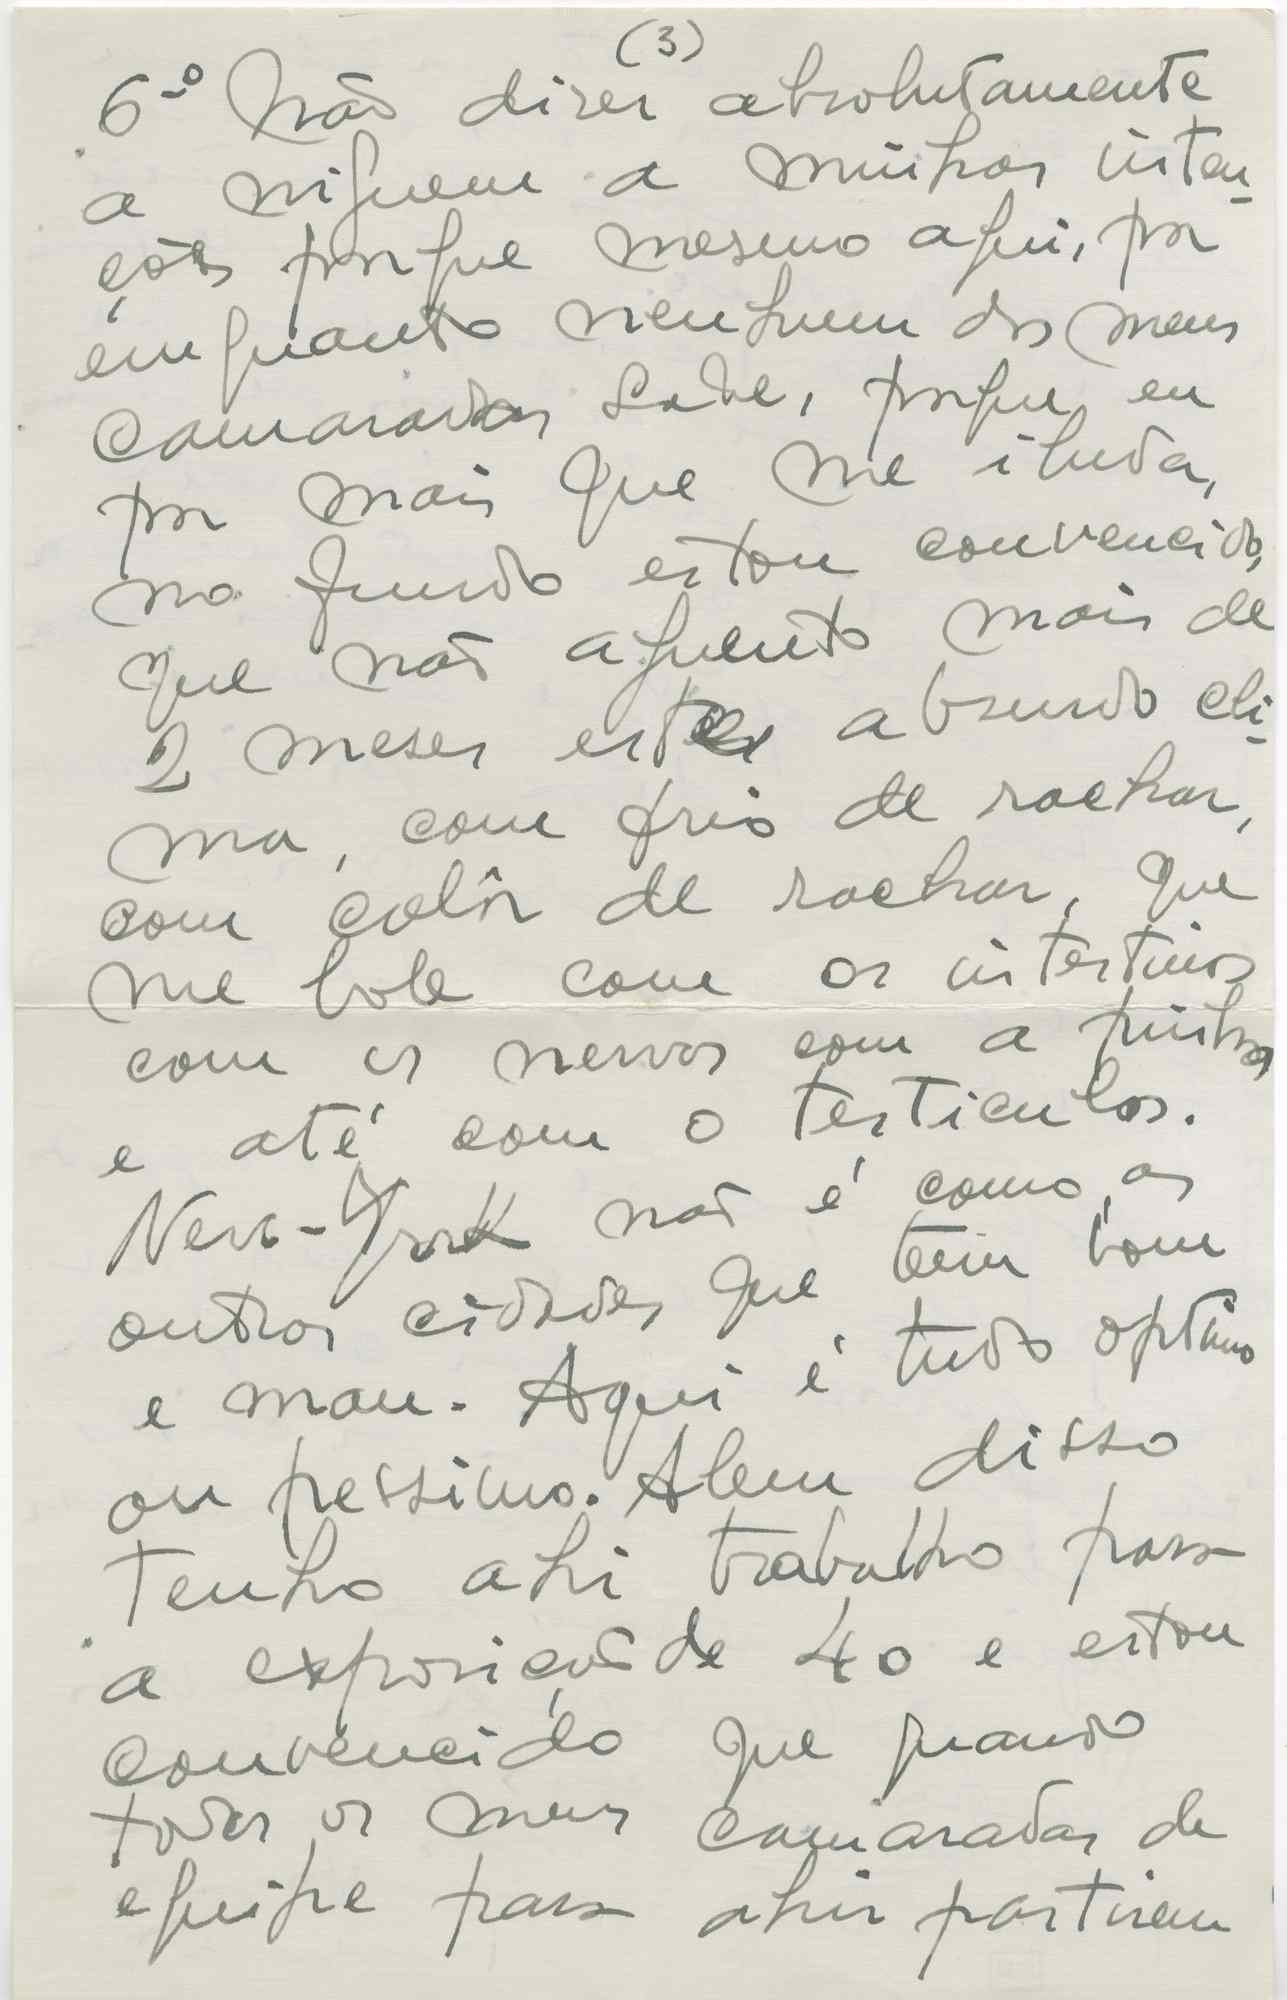 (3)
6-º Não dizer absolutamente
a niguem a minhas inten-
ções porque mesmo aqui, por
emquanto nenhum dos meus
camaradas sabe, porque eu
por mais que me iluda,
no fundo estou convencido,
que não aguento mais de
2 meses este absurdo cli-
ma, com frio de rachar,
com calôr de rachar, que
me bole com os intestinos
com os nervos com a
e até com o testiculos.
New-York não é como as
outras cidades que tem bom
e mau. Aqui é tudo optimo
ou pessimo. Alem disso
tenho ahi trabalho para
a exposição de 40 e estou
convencido que quando
todos os meus camaradas de
equipe para ahir partirem